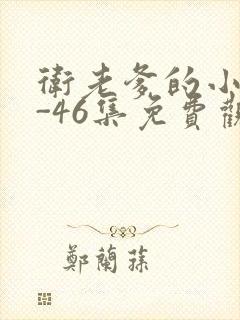 衛老爹的小
-46集免費觀
鄭蘭蓀